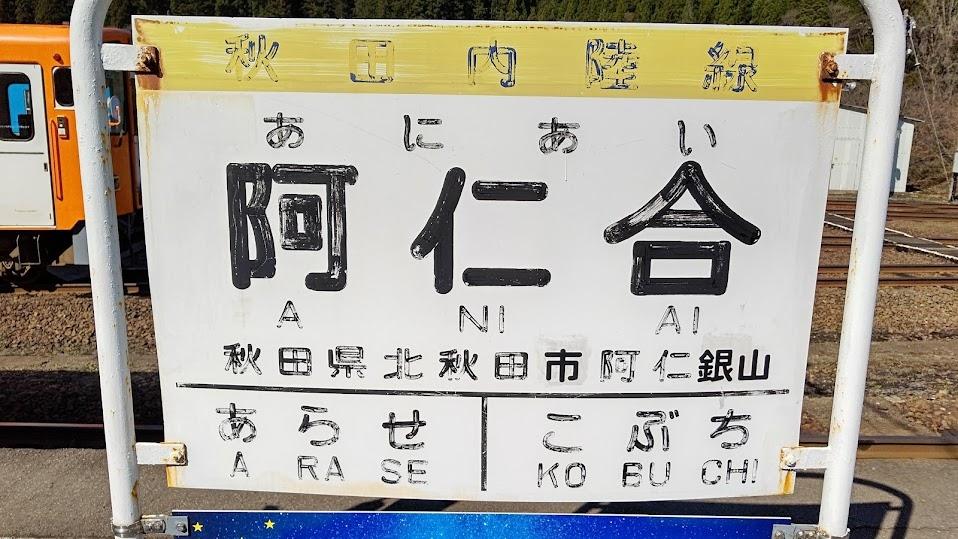 秋田内陸線
あにあい
阿仁合
A NI AI
秋田県北秋田市阿仁銀山
あらせ こぶち
A RA SE KO BU CHI